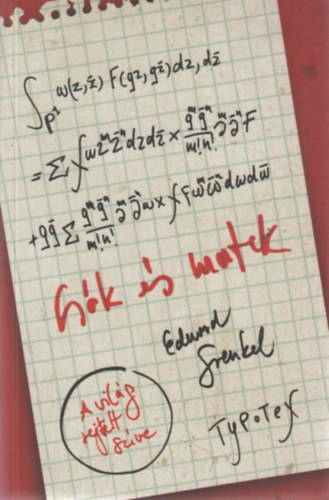 ∫_{P¹} ω(z,z̄) F(qz,qz̄) dz, dz̄
= Σ ∫ ωz^m z̄^n dz dz̄ × q^m q̄^n / m!n! ∂^m ∂̄^n F
+ qq̄ Σ q^m q̄^n / m!n! ∂^m ∂̄^n ω × ∫ F w^m w̄^n dw dw̄
Csók és matek
Edward
Frenkel
A világ
rejtett
szíve
TypoTeX